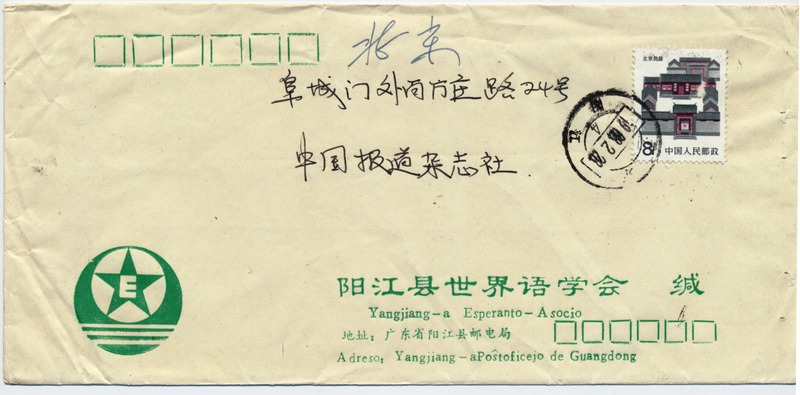 北京
阜城门外百万庄路24号
中国报道杂志社
北京民居
8
中国人民邮政
E
阳江县世界语学会 缄
Yangjiang-a Esperanto-Asocio
地址：广东省阳江县邮电局
Adreso: Yangjiang-aPostoficejo de Guangdong